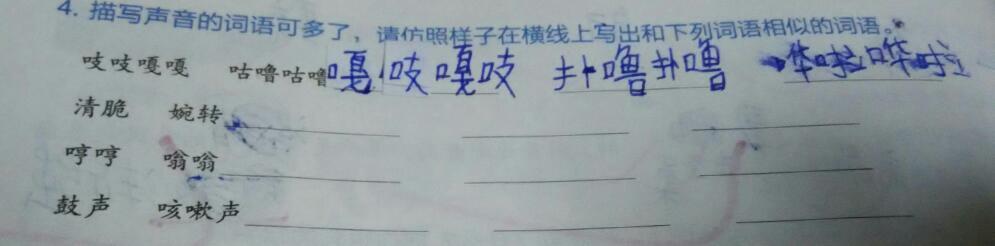 4. 描写声音的词语可多了，请仿照样子在横线上写出和下列词语相似的词语。
吱吱嘎嘎 咕噜咕噜 嘎吱嘎吱 扑噜扑噜 哗啦哗啦
清脆 婉转
哼哼 嗡嗡
鼓声 咳嗽声